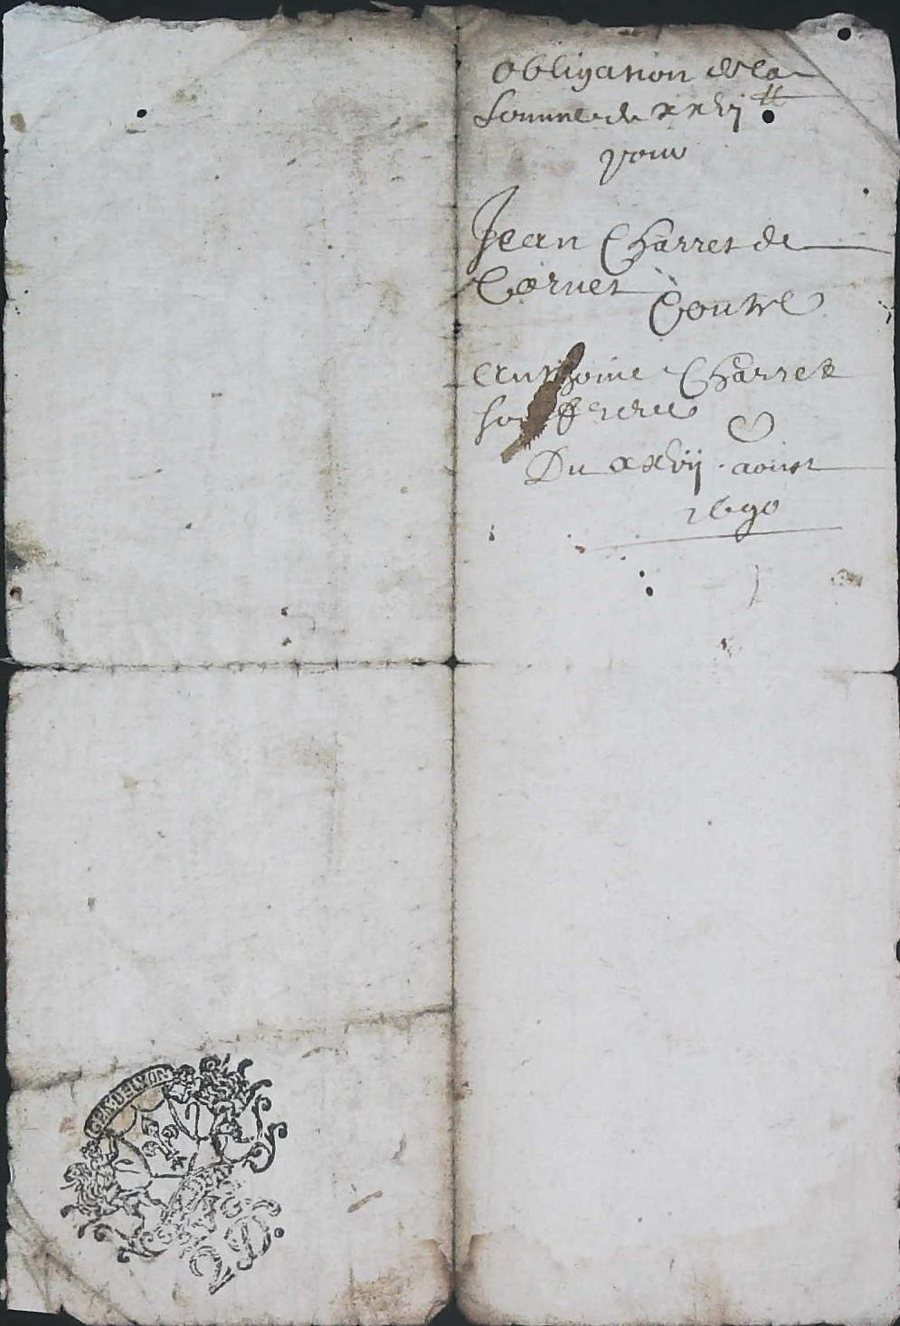 Obligation de la
Somme de xxvj ##
pour
Jean Charret de
Cornet
Contre
Anthoine Charret
son frere
Du xxvij aoust
1690
GEN DE LYON
2 D.